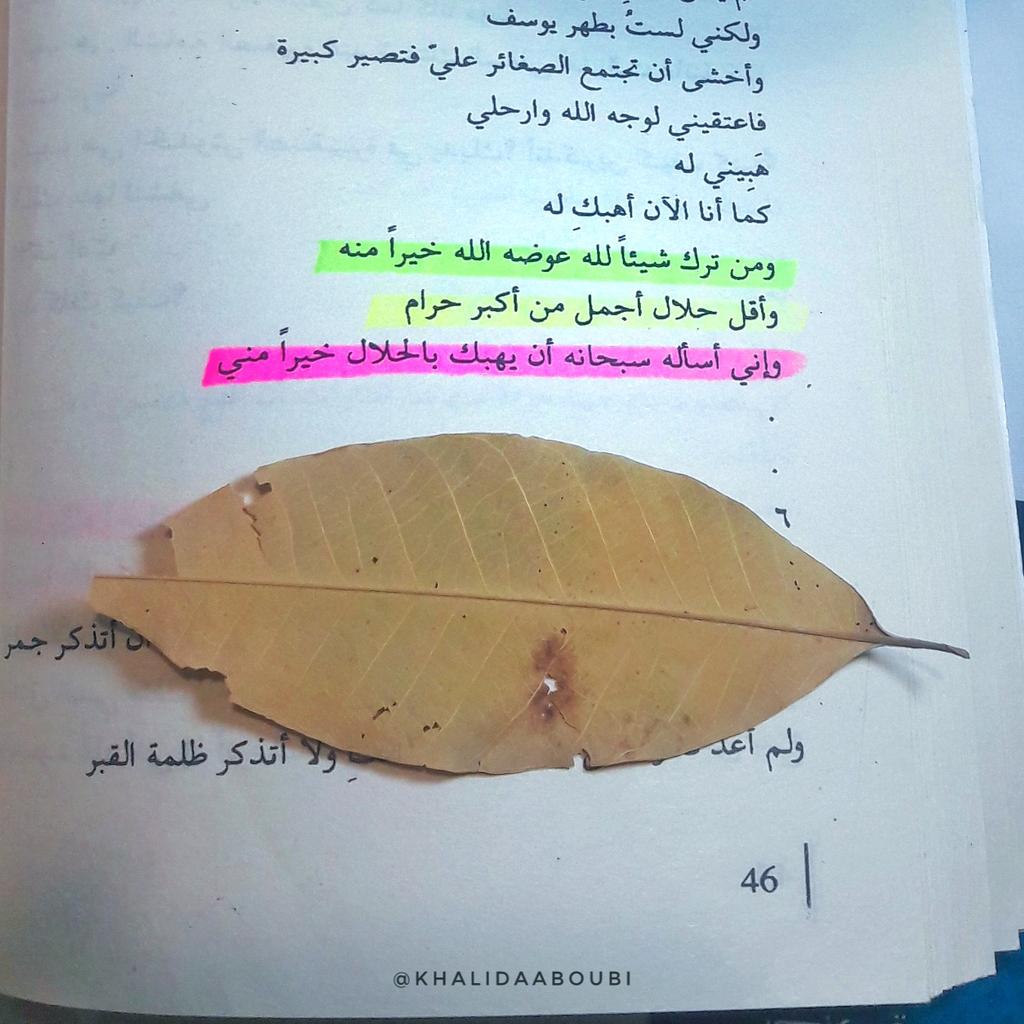 ولكني لستُ بطهر يوسف
وأخشى أن تجتمع الصغائر عليّ فتصير كبيرة
فاعتقيني لوجه الله وارحلي
هَبِيني له
كما أنا الآن أهبكِ له
ومن ترك شيئاً لله عوضه الله خيراً منه
وأقل حلال أجمل من أكبر حرام
وإني أسأله سبحانه أن يهبك بالحلال خيراً مني
.
.
٦
أن أتذكر جمر
ولم أعد ولا أتذكر ظلمة القبر
46
@KHALIDAABOUBI